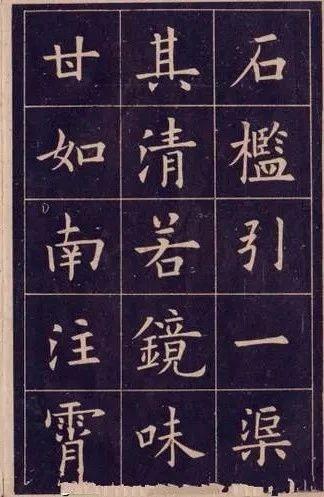 石檻引一渠
其清若鏡味
甘如南注霄